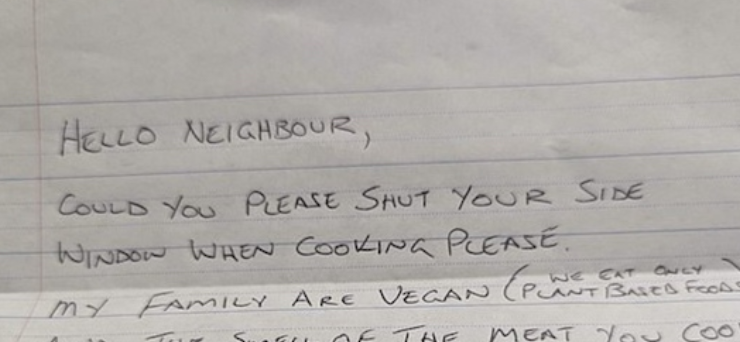 HELLO NEIGHBOUR,
COULD YOU PLEASE SHUT YOUR SIDE
WINDOW WHEN COOKING PLEASE.
MY FAMILY ARE VEGAN (WE EAT ONLY
PLANT BASED FOODS
THE SMELL OF THE MEAT YOU COO